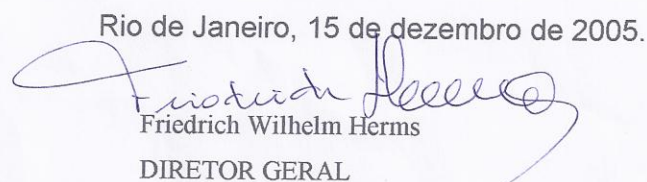 Rio de Janeiro, 15 de dezembro de 2005.
Friedrich Herms
Friedrich Wilhelm Herms
DIRETOR GERAL